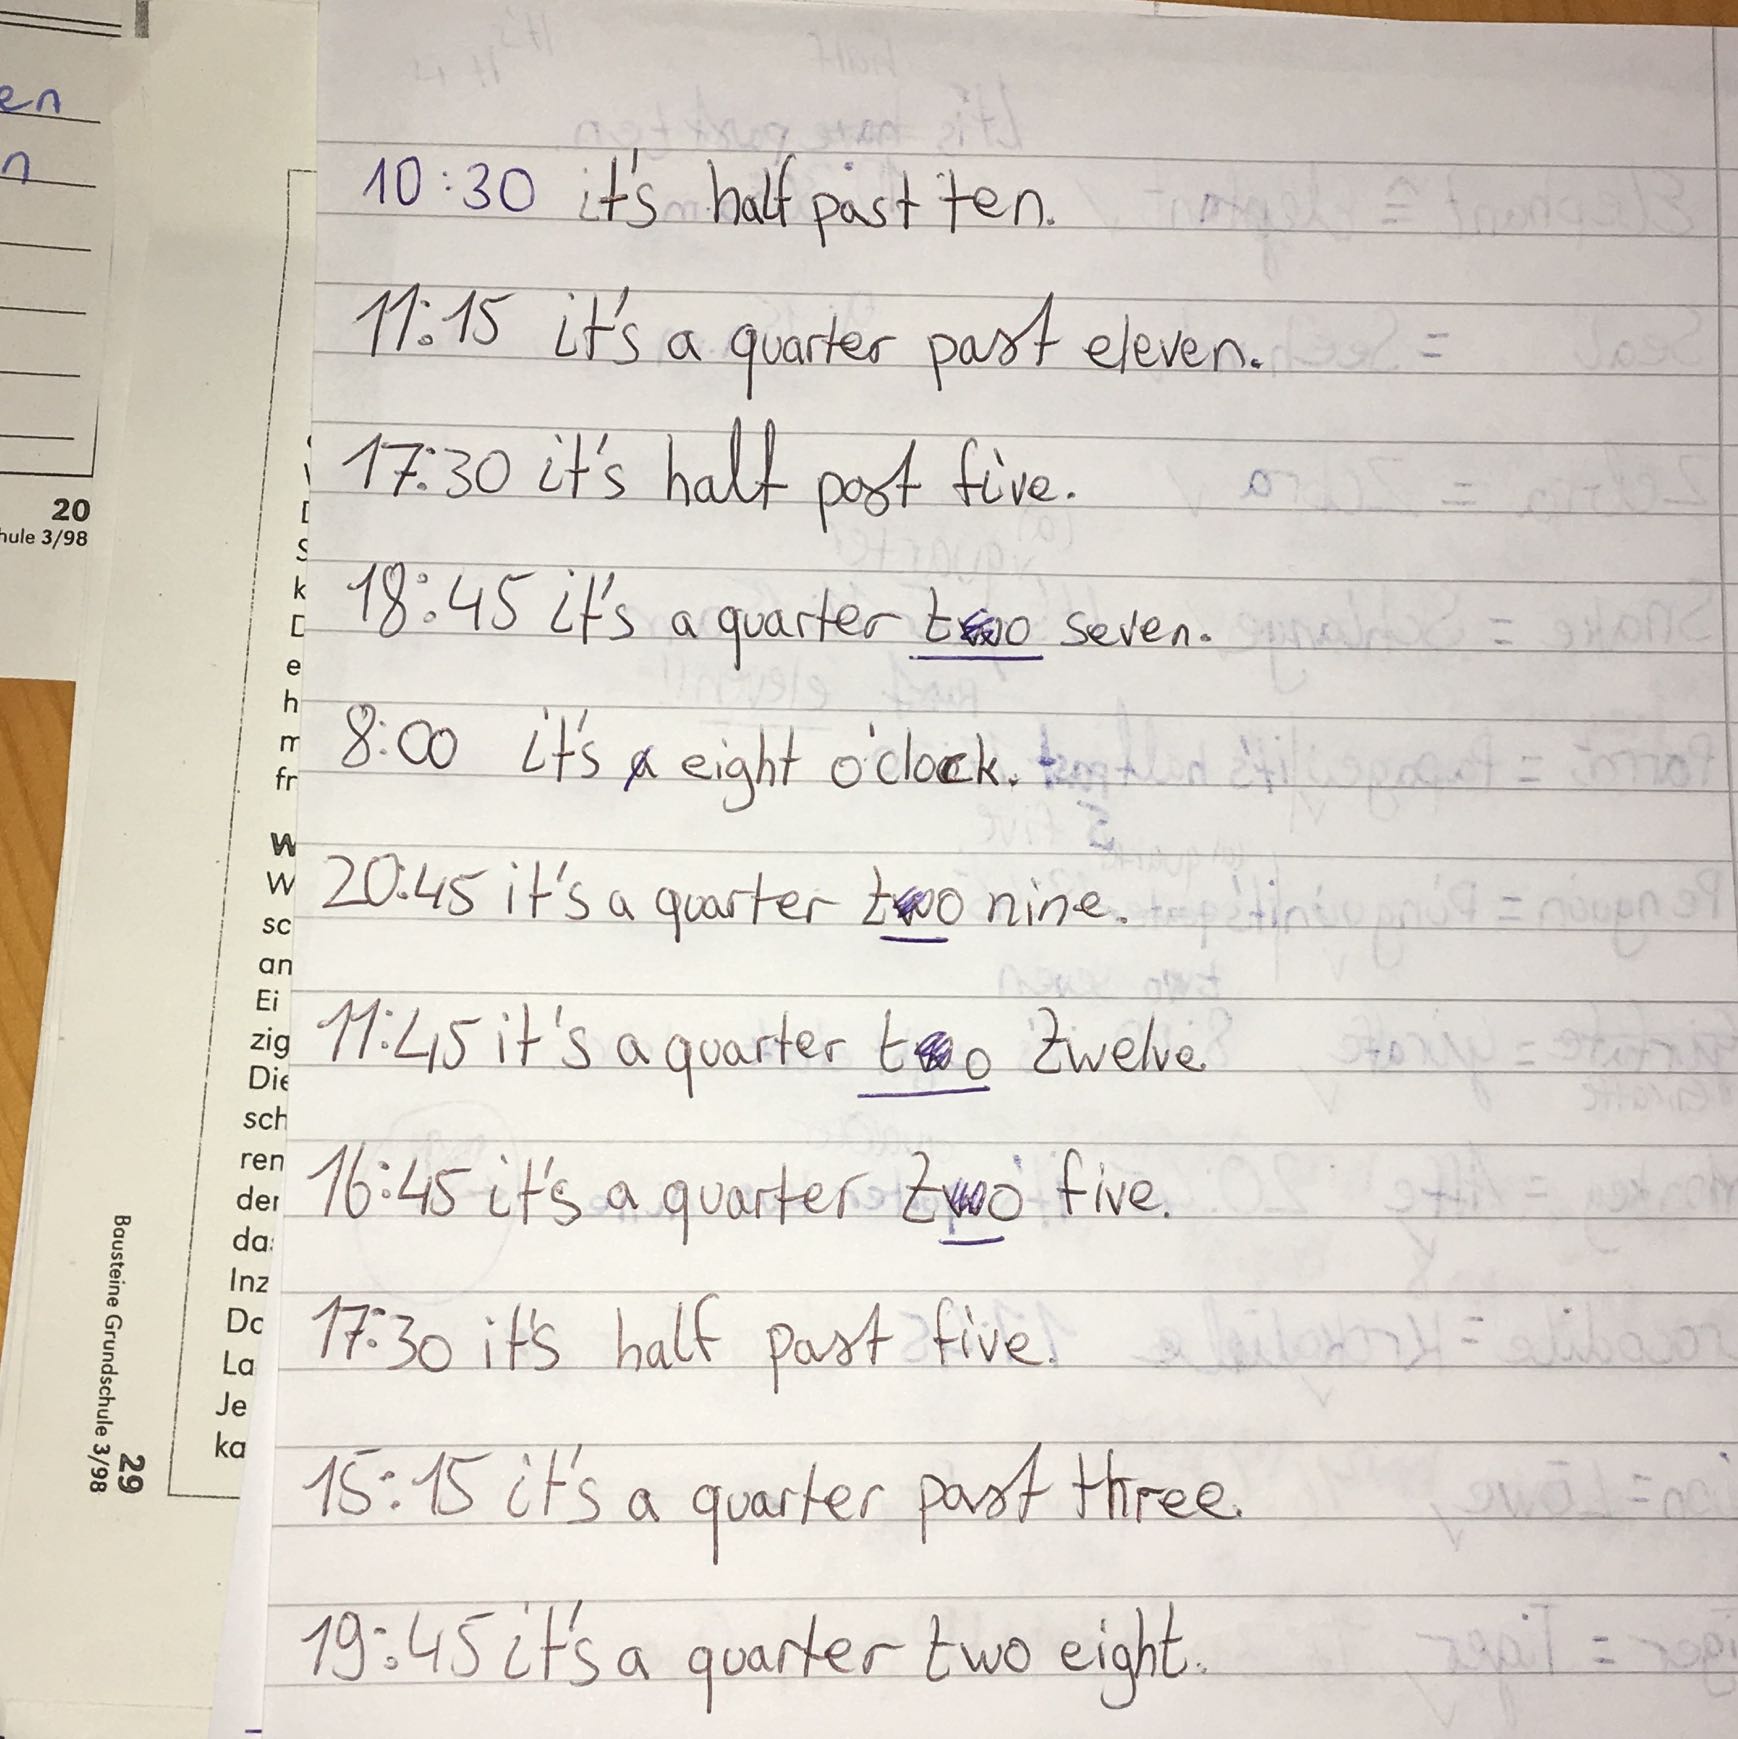 en
n
20
hule 3/98
k
e
h
fr
W
W
sc
an
Ei
zig
Die
sch
ren
der
da
Inz
Do
La
Je
ka
Bausteine Grundschule 3/98
29
10:30 it's half past ten.
11:15 it's a quarter past eleven.
17:30 it's half past five.
18:45 it's a quarter two seven.
8:00 it's a eight o'clock.
20:45 it's a quarter two nine.
11:45 it's a quarter two Zwelve.
16:45 it's a quarter Zwo five.
17:30 it's half past five.
15:15 it's a quarter past three.
19:45 it's a quarter two eight.